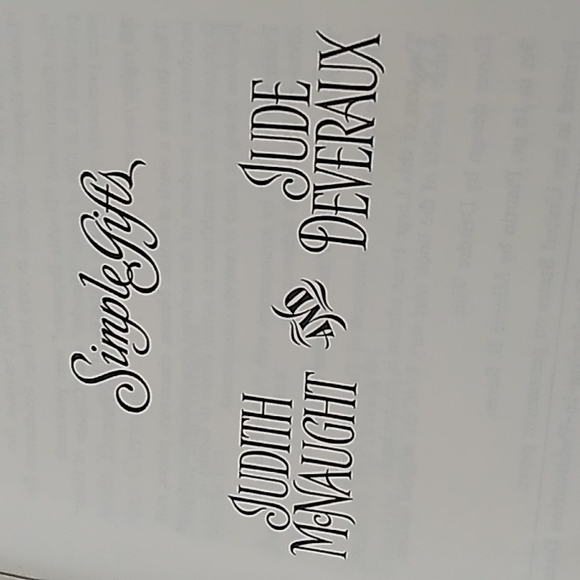 Simple Gifts
JUDITH
MCNAUGHT
AND
JUDE
DEVERAUX